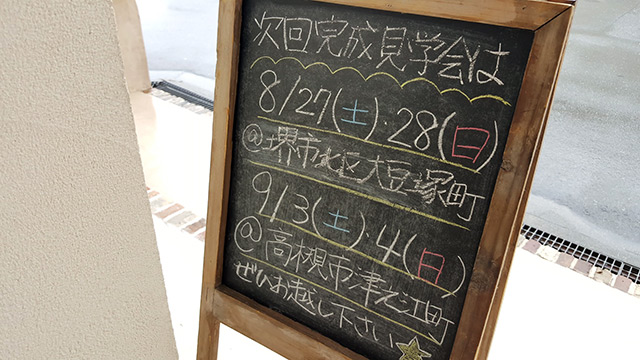 次回完成見学会は
8/27(土)・28(日)
@堺市北区大豆塚町
9/3(土)・4(日)
@高槻市津之江町
ぜひお越し下さい